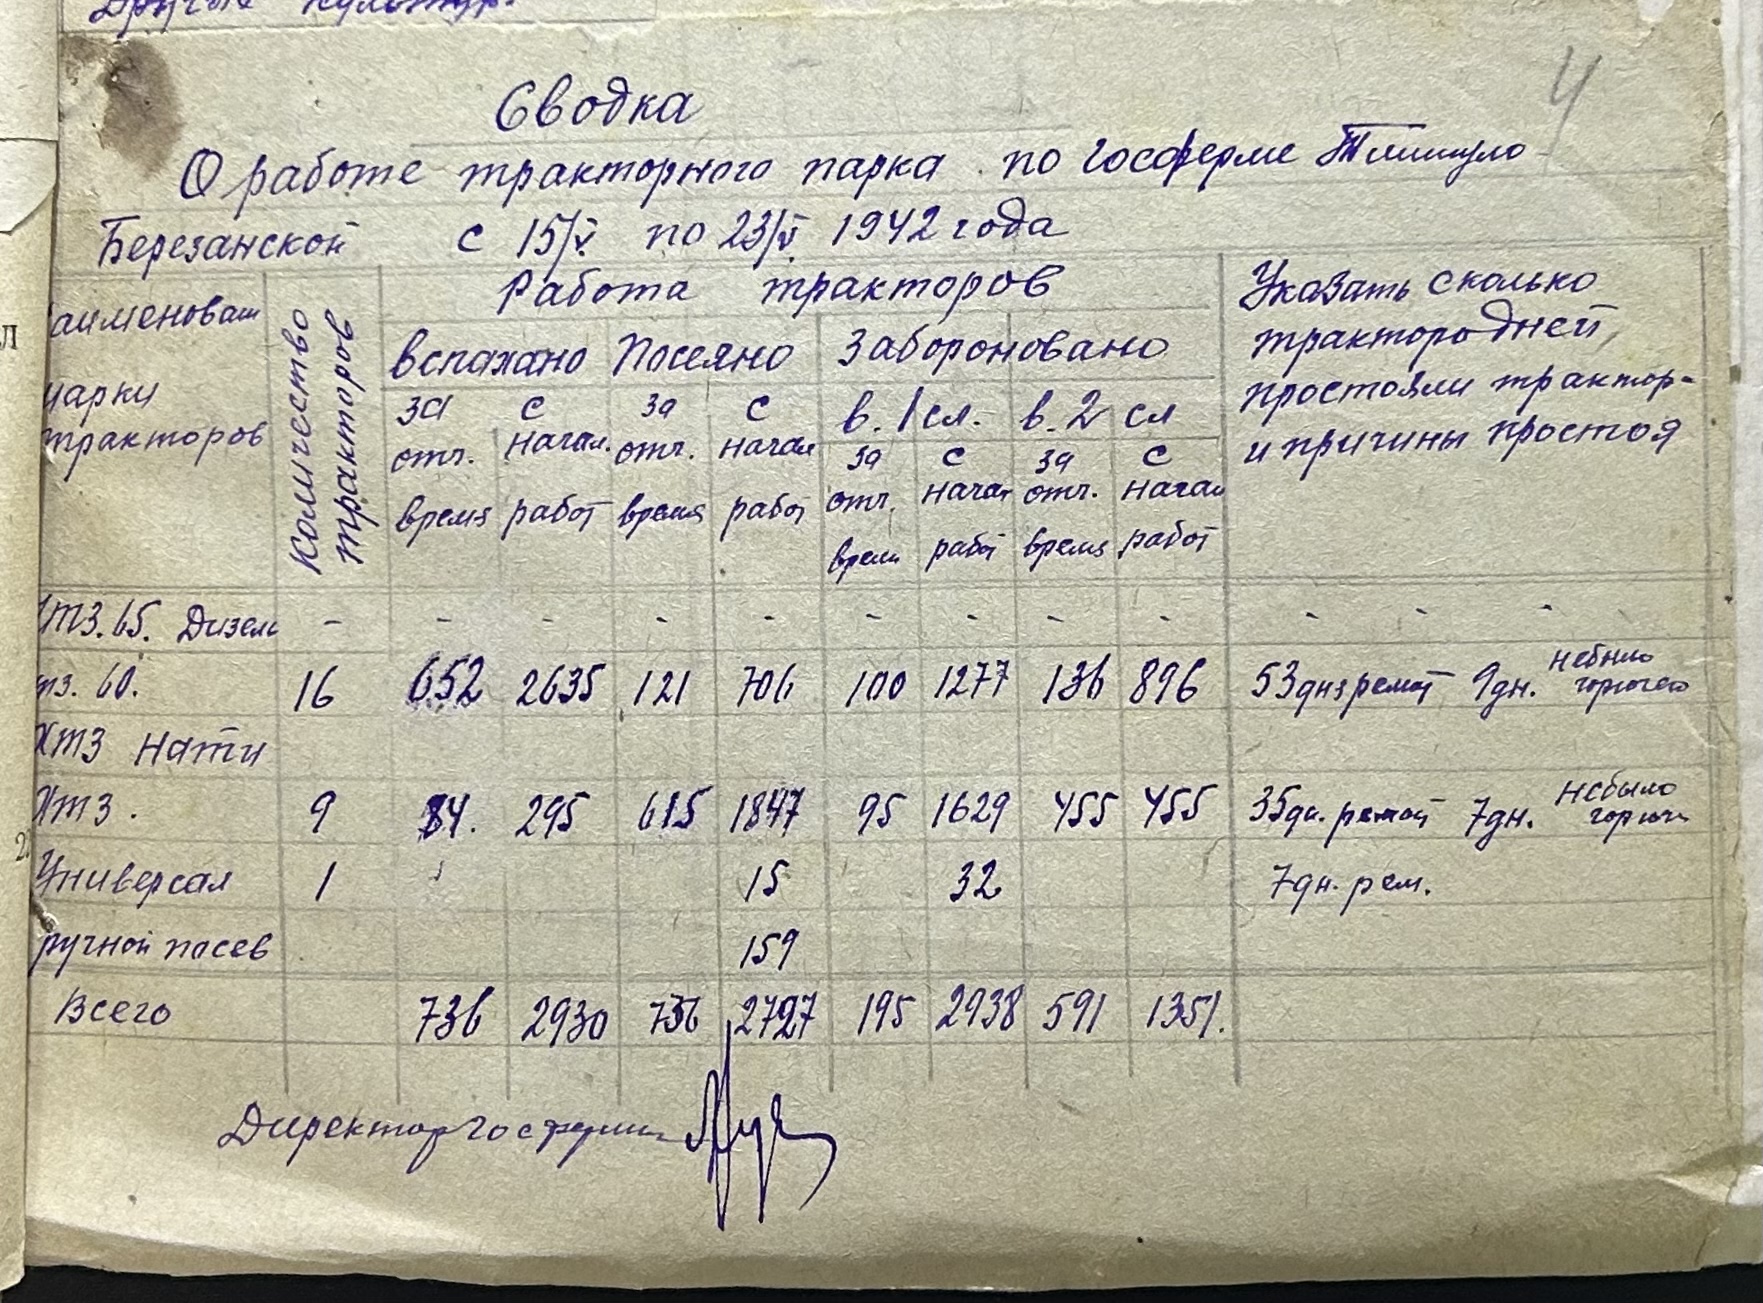 Другие культур.
4
Сводка
О работе тракторного парка по госферме
Березанской с 15/V по 23/V 1942 года
аименован
марки
тракторов
Количество
тракторов
Работа тракторов
Указать сколько
трактородней,
простояли трактор-
и причины простоя
вспахано Посеяно Забороновано
за с за с в. 1 сл. в. 2 сл
отч. начал. отч. начал за с за с
время работ время работ отч. начал отч. начал
врем работ время работ
тз. 65. Дизель - - - - - - - - - - - -
тз. 60. 16 652 2635 121 706 100 1277 136 896 53 дня ремот 9 дн. небыло горючего
ХТЗ Нати
ХТЗ. 9 84. 295 615 1847 95 1629 455 455 35 дн. ремот 7 дн. небыло горюч
Универсал 1 15 32 7 дн. рем.
ручной посев 159
Всего 736 2930 736 2727 195 2938 591 1351.
Директор госфермы